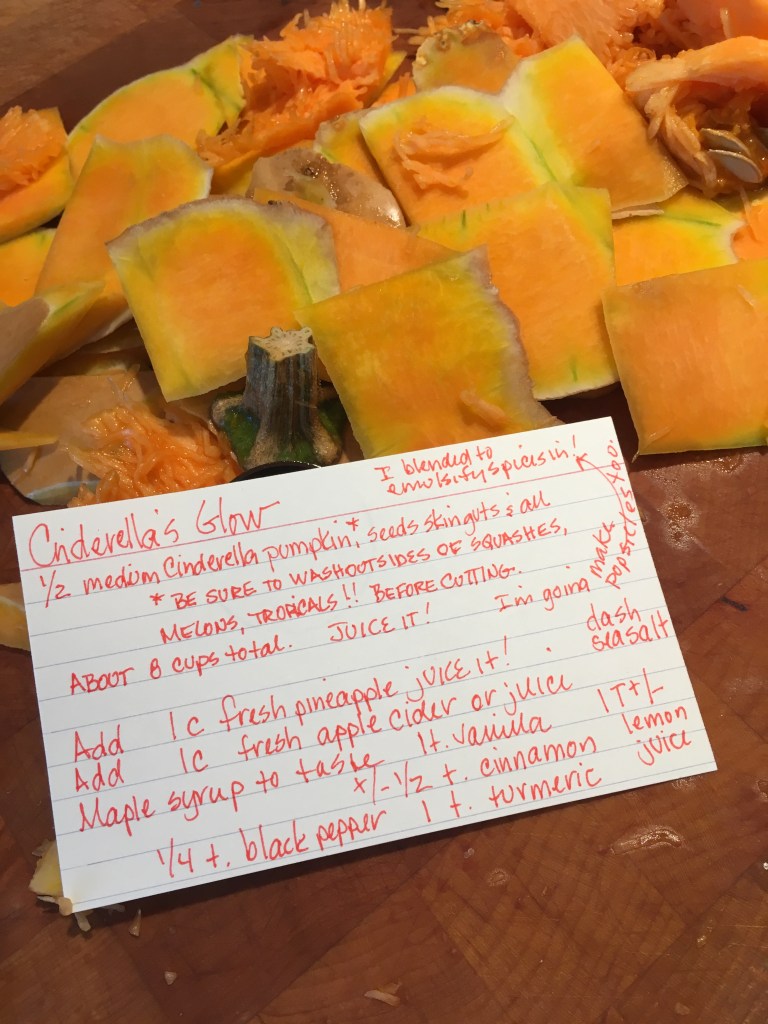 I blended to
emulsify spices in!
Cinderella's Glow
1/2 medium Cinderella pumpkin*, seeds skin guts & all
* BE SURE TO WASH OUTSIDES OF SQUASHES,
MELONS, TROPICALS!! BEFORE CUTTING.
ABOUT 8 cups total. JUICE IT!
I'm going make
popsicles too.
Add 1 c fresh pineapple juice it!
dash
sea salt
Add 1c fresh apple cider or juice
Maple syrup to taste 1t. vanilla
1 T +/-
lemon
juice
+/- 1/2 t. cinnamon
1/4 t. black pepper 1 t. turmeric